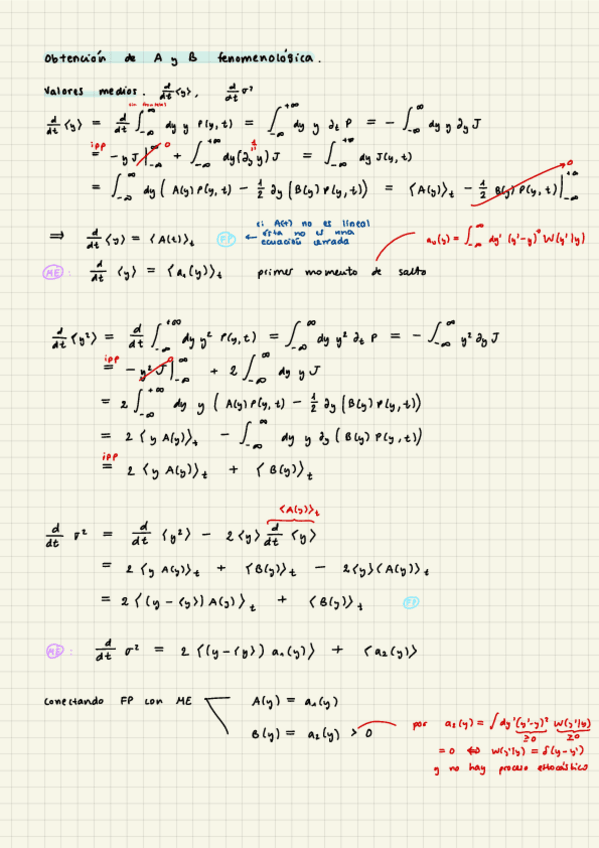 Obtención de A y B fenomenológica.
Valores medios. d/dt ⟨y⟩, d/dt σ²
d/dt ⟨y⟩ = d/dt ∫_{-∞}^{∞} dy y P(y,t) = ∫_{-∞}^{+∞} dy y ∂_t P = - ∫_{-∞}^{∞} dy y ∂_y J
ipp = - y J |_{-∞}^{∞} 0 + ∫_{-∞}^{+∞} dy (∂_y y) 1 J = ∫_{-∞}^{+∞} dy J(y,t)
= ∫_{-∞}^{∞} dy ( A(y) P(y,t) - 1/2 ∂_y (B(y) P(y,t)) = ⟨A(y)⟩_t - 1/2 B(y) P(y,t) |_{-∞}^{+∞} 0
⟹ d/dt ⟨y⟩ = ⟨A(t)⟩_t FP ← si A(t) no es lineal
esta no es una
ecuación cerrada
a_ν(y) = ∫_{-∞}^{∞} dy' (y'-y)^ν W(y'|y)
ME: d/dt ⟨y⟩ = ⟨a₁(y)⟩_t primer momento de salto
d/dt ⟨y²⟩ = d/dt ∫_{-∞}^{+∞} dy y² P(y,t) = ∫_{-∞}^{∞} dy y² ∂_t P = - ∫_{-∞}^{∞} y² ∂_y J
ipp = - y² J |_{-∞}^{∞} 0 + 2 ∫_{-∞}^{∞} dy y J
= 2 ∫_{-∞}^{+∞} dy y ( A(y) P(y,t) - 1/2 ∂_y (B(y) P(y,t))
= 2 ⟨y A(y)⟩_t - ∫_{-∞}^{∞} dy y ∂_y (B(y) P(y,t))
ipp = 2 ⟨y A(y)⟩_t + ⟨B(y)⟩_t
⟨A(y)⟩_t
d/dt σ² = d/dt ⟨y²⟩ - 2⟨y⟩ d/dt ⟨y⟩
= 2 ⟨y A(y)⟩_t + ⟨B(y)⟩_t - 2⟨y⟩⟨A(y)⟩_t
= 2 ⟨(y - ⟨y⟩) A(y)⟩_t + ⟨B(y)⟩_t FP
ME: d/dt σ² = 2 ⟨(y-⟨y⟩) a₁(y)⟩ + ⟨a₂(y)⟩
Conectando FP con ME A(y) = a₁(y)
B(y) = a₂(y) > 0
por a₂(y) = ∫ dy' (y'-y)² W(y'|y)
≥0 ≥0
= 0 ⟺ W(y'|y) = δ(y-y')
y no hay proceso estocástico